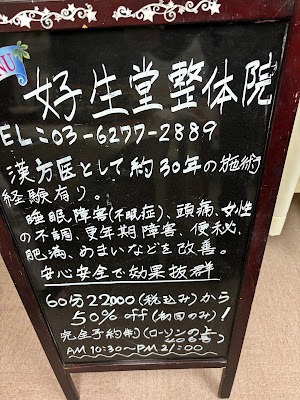 NU
好生堂整体院
EL:03-6277-2889
漢方医として約30年の施術
経験有り。
睡眠障害(不眠症)、頭痛、女性
の不調、更年期障害、便秘、
肥満、めまいなどを改善。
安心安全で効果抜群
60分22000(税込み)から
50% off(初回のみ)!
完全予約制(ローソンの上
406号)
AM10:30〜PM21:00